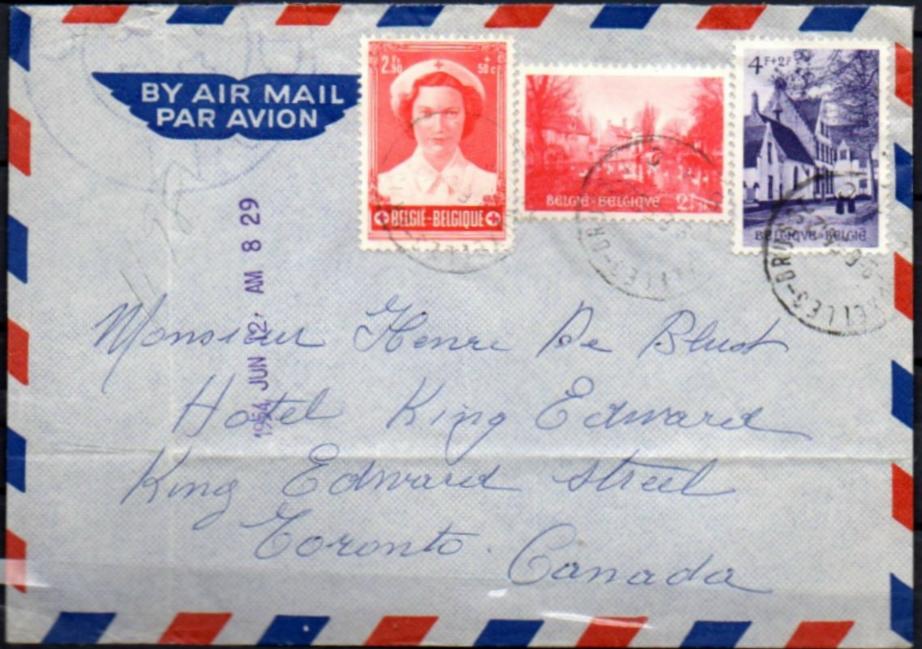 BY AIR MAIL
PAR AVION
2.50 + 50c
BELGIE-BELGIQUE
BELGIË-BELGIQUE
4F+2F
BELGIQUE-BELGIË
1954 JUN 12 AM 8 29
Monsieur Henri De Blust
Hotel King Edward
King Edward Street
Toronto.
Canada